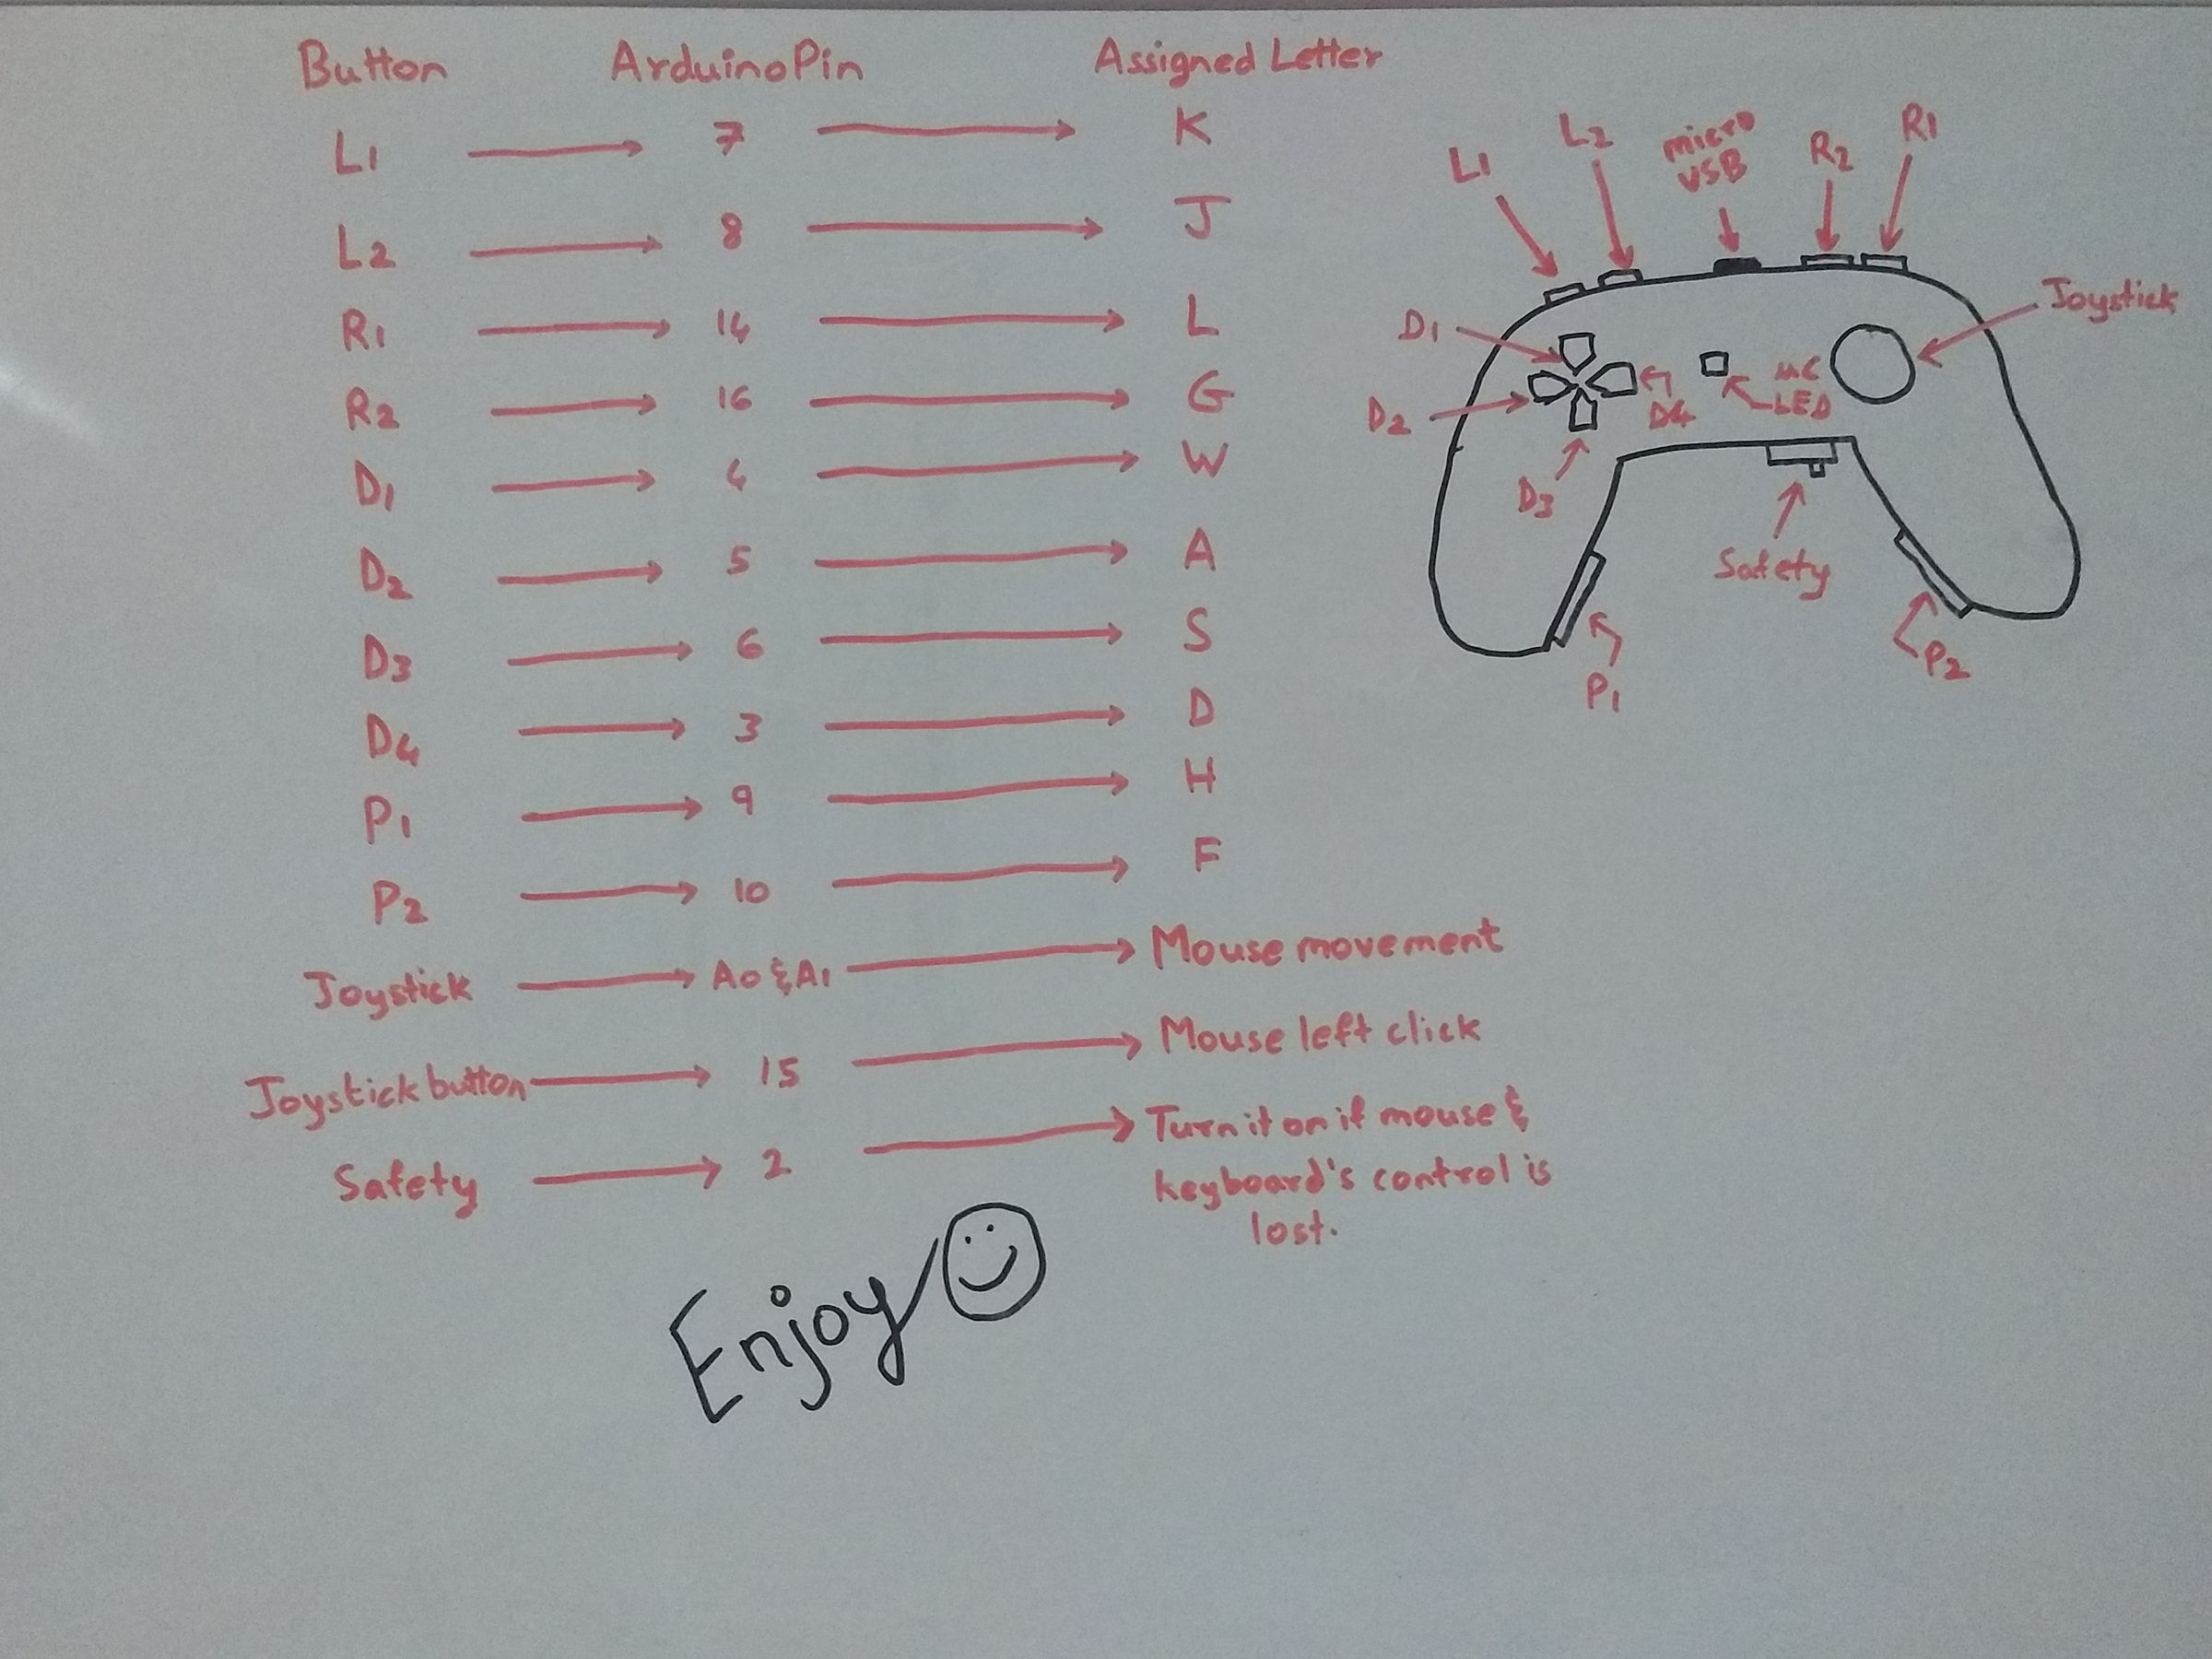 Button ArduinoPin Assigned Letter
L1 7 K
L2 8 J
R1 14 L
R2 16 G
D1 4 W
D2 5 A
D3 6 S
D4 3 D
P1 9 H
P2 10 F
Joystick A0 & A1 Mouse movement
Joystick button 15 Mouse left click
Safety 2 Turn it on if mouse &
keyboard's control is
lost.
Enjoy
L1
L2
micro
USB
R2
R1
Joystick
D1
D2
D3
D4
LED
Safety
P1
P2